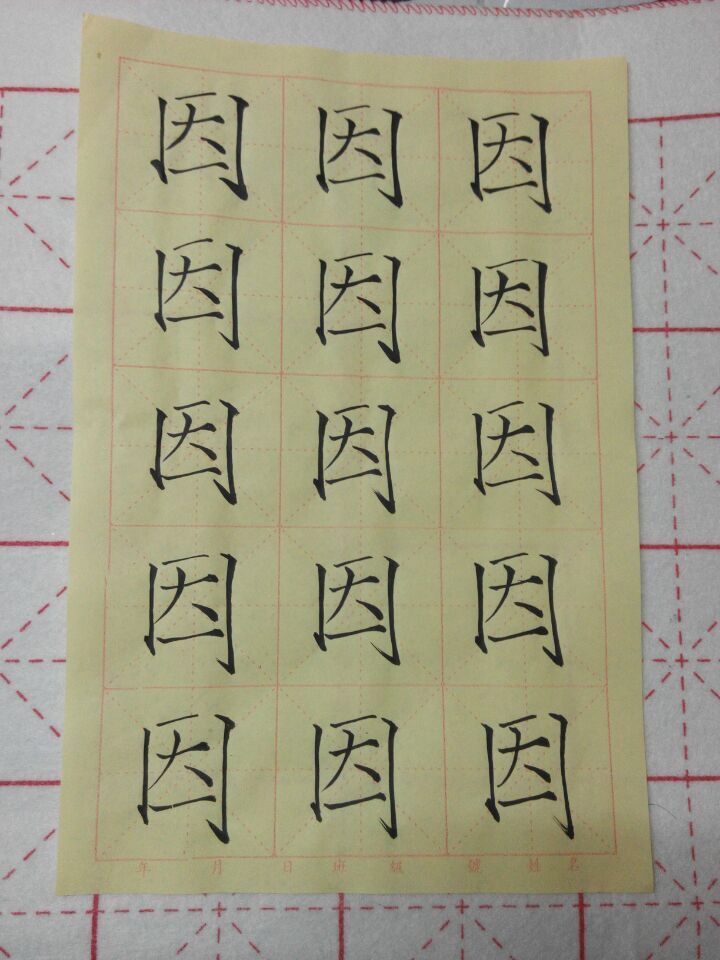 因 因 因
因 因 因
因 因 因
因 因 因
因 因 因
年 月 日 班 級 號 姓 名